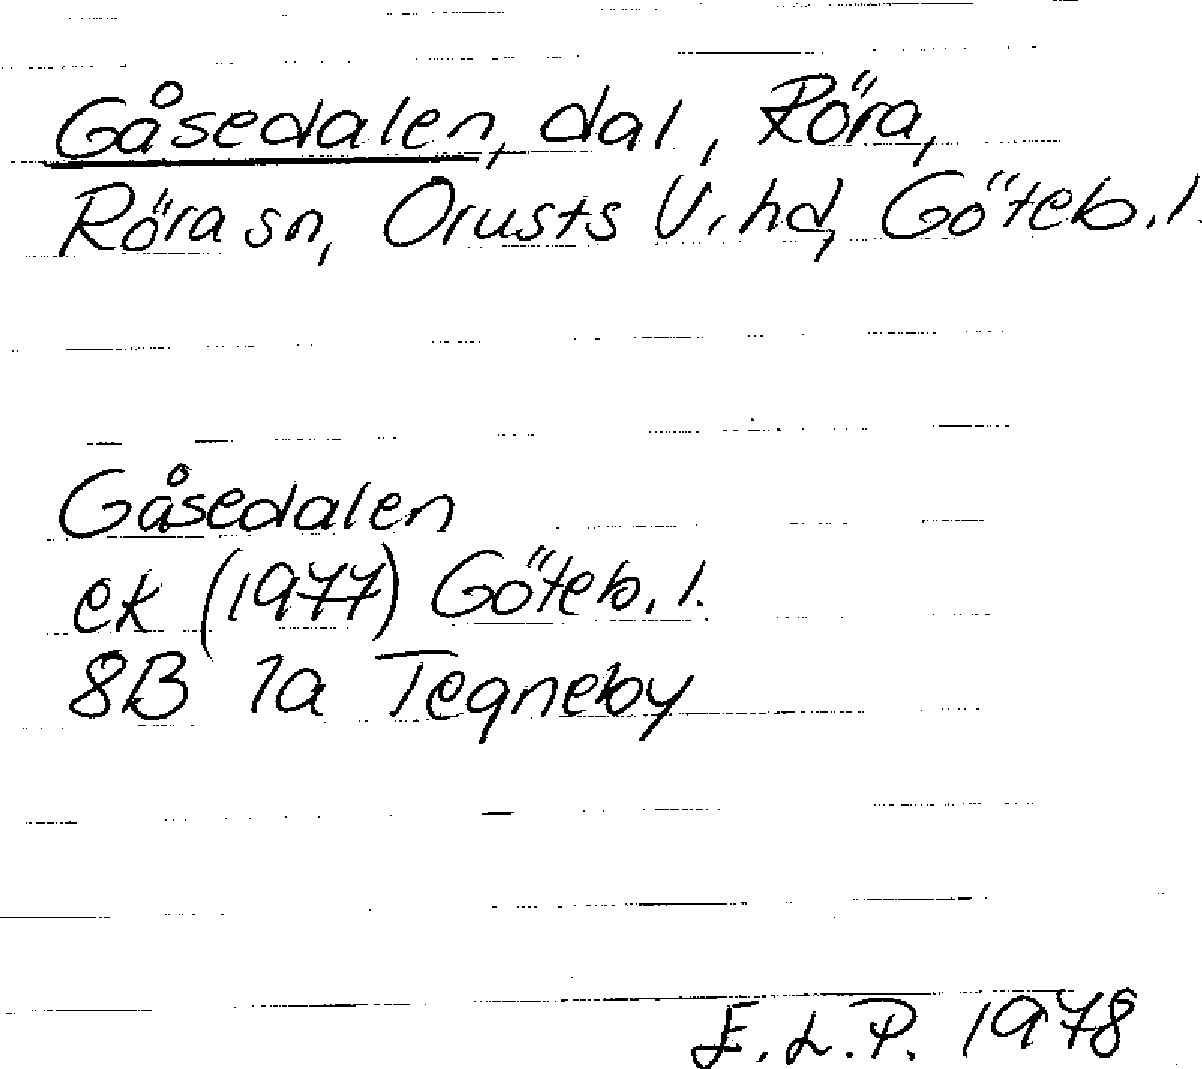 Gåsedalen, dal, Röra,
Röra sn, Orusts V. hd, Göteb. l.
Gåsedalen
ek (1977) Göteb. l.
8B 1a Tegneby
E. L. P. 1978